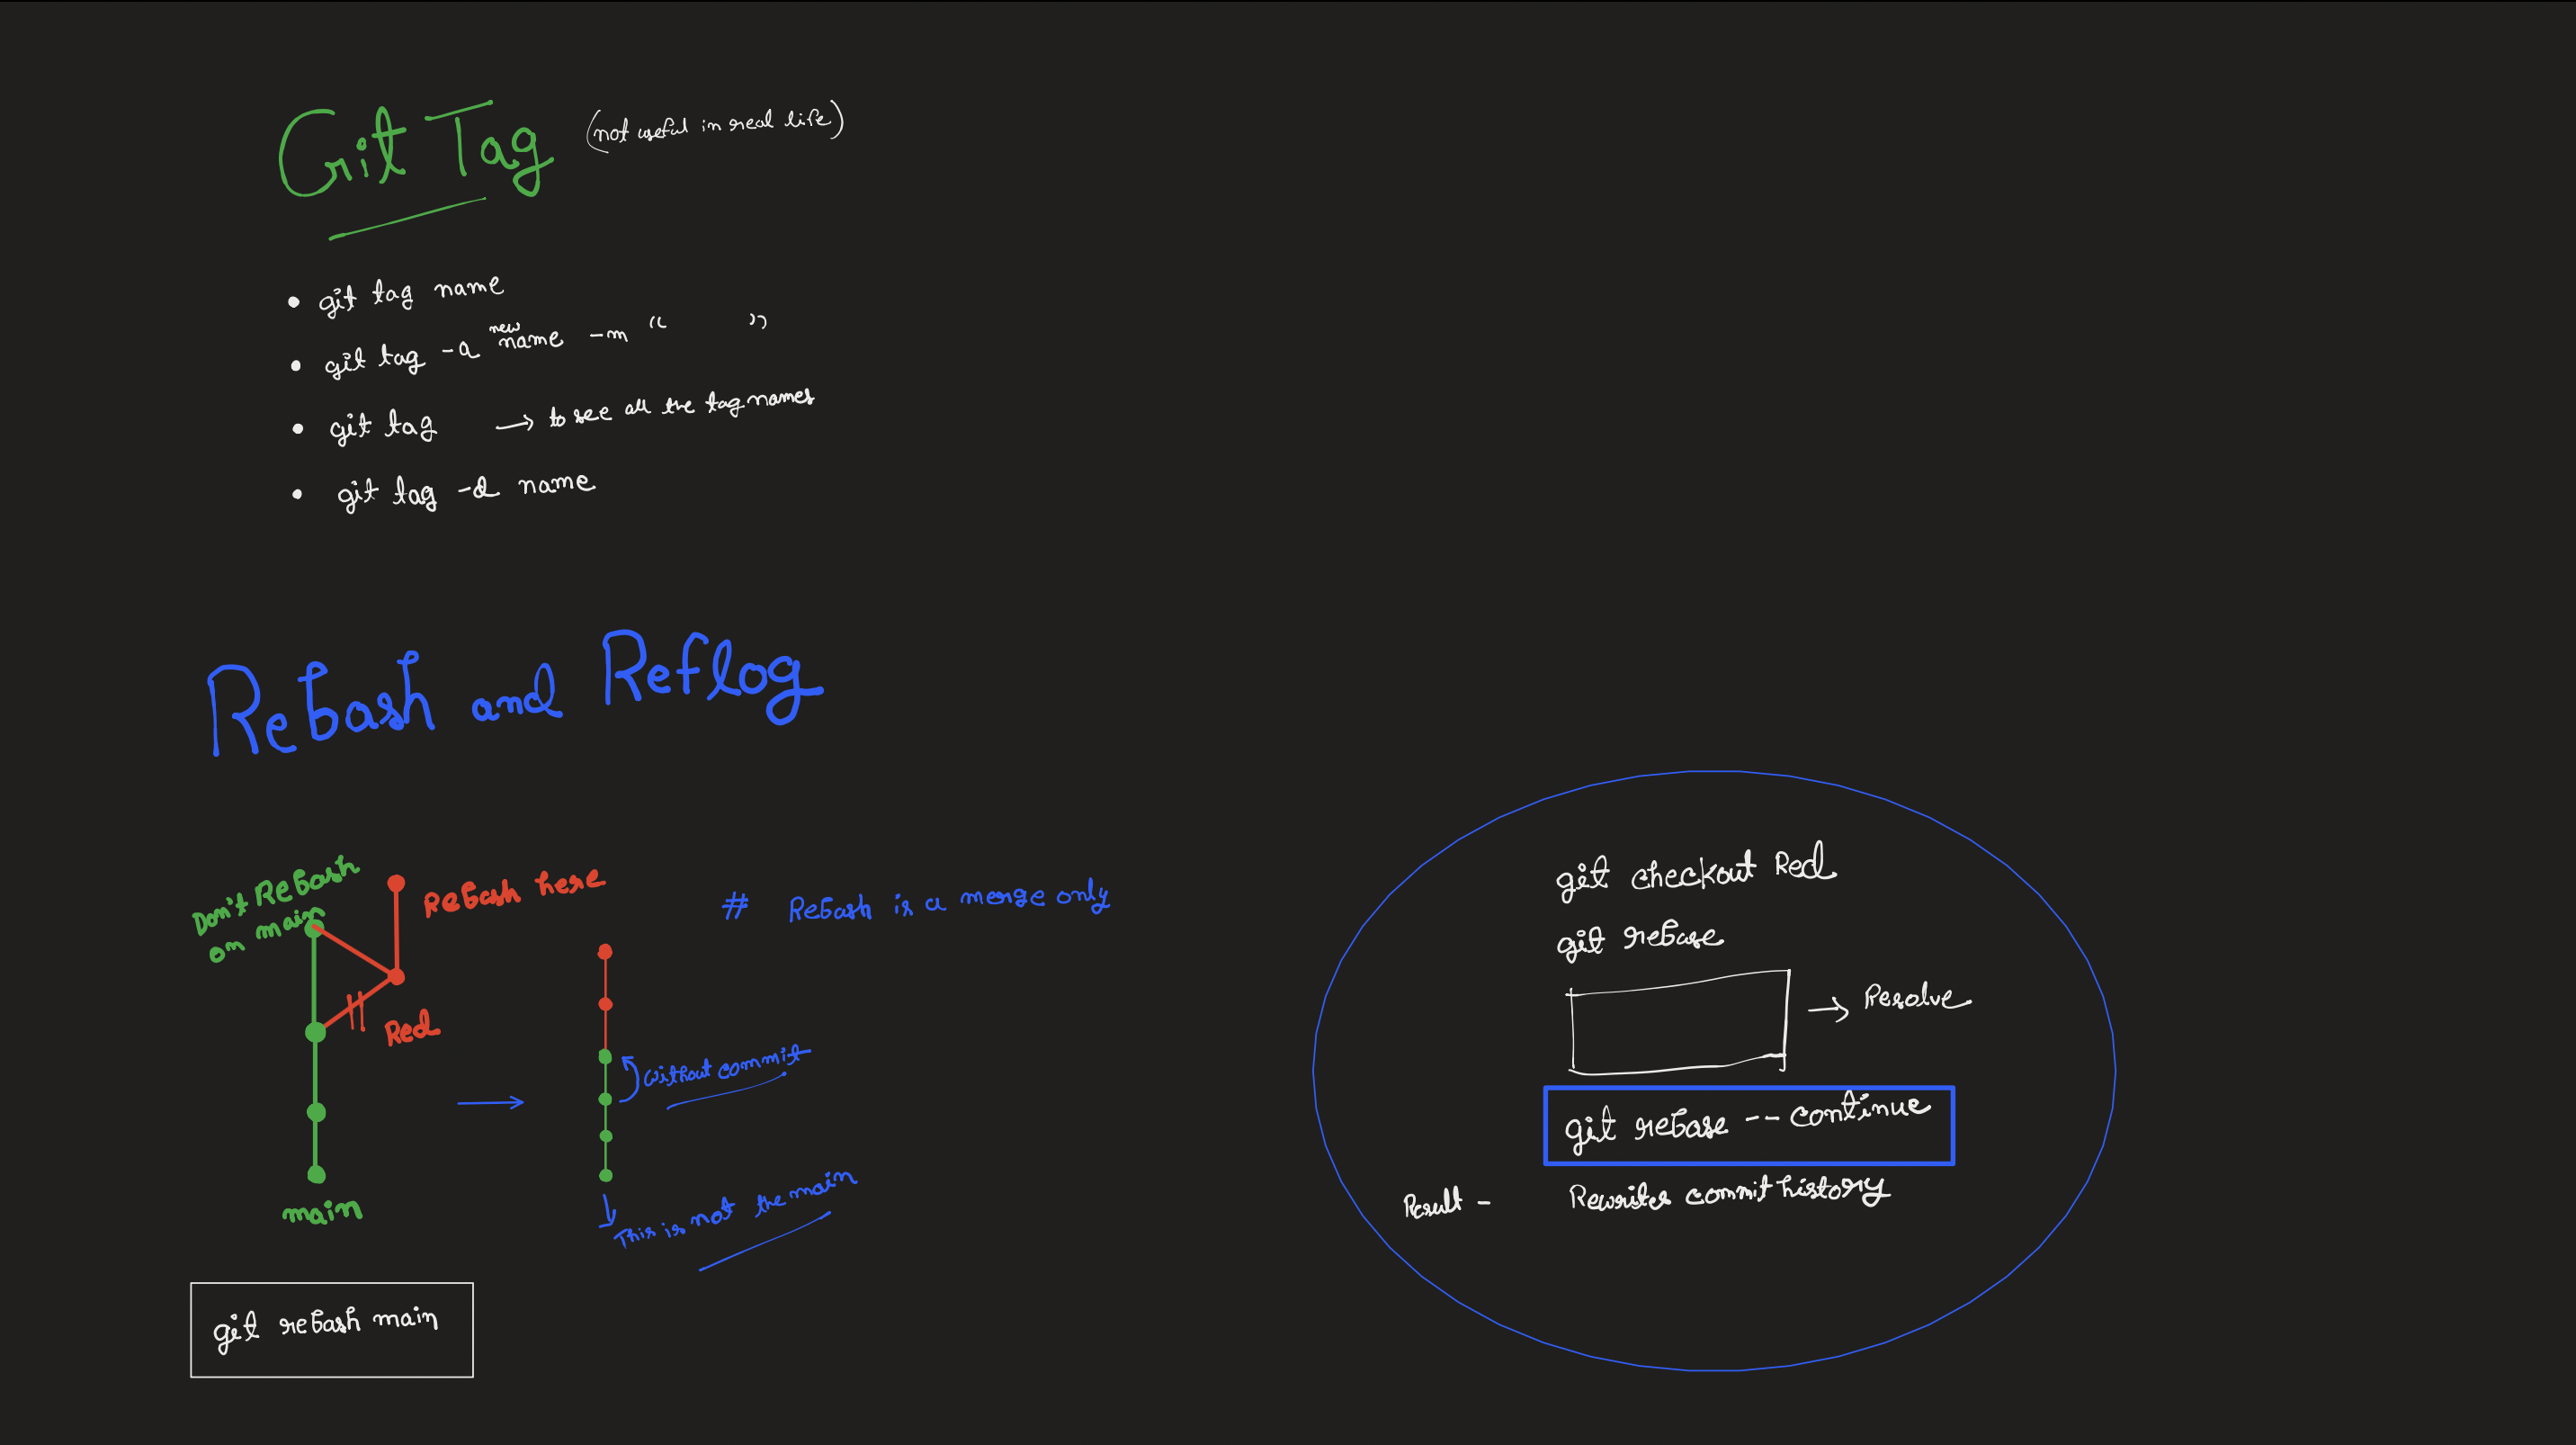 Git Tag (not useful in real life)
• git tag name
• git tag -a new name -m “ ”
• git tag → to see all the tag names
• git tag -d name
Rebash and Reflog
Don't Rebash
on main
Rebash here
Red
main
git rebash main
# Rebash is a merge only
without commit
This is not the main
git checkout Red
git rebase
→ Resolve
git rebase -- continue
Result - Rewrites commit history